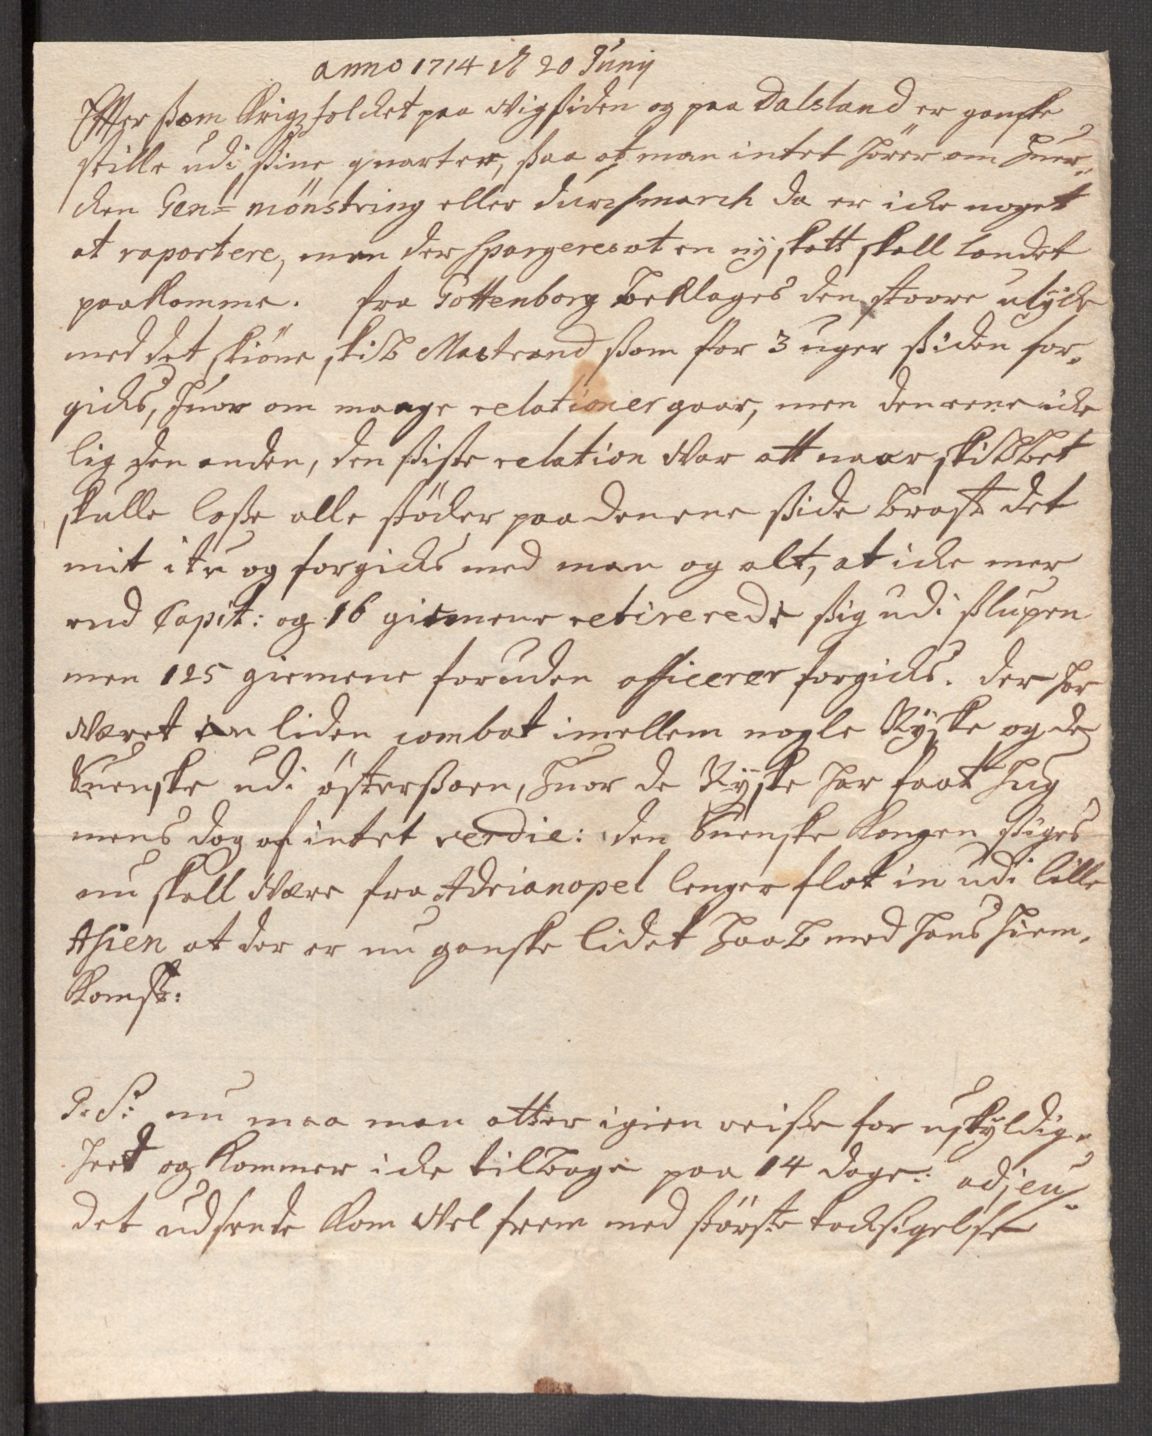 anno 1714 d 20 Junij
Effter ßom Krigsfolchet paa Wigßiden og paa Dalsland er ganske
stille udi ßine quarter, ßaa at man intet hører om huer-
cken Gen= mönstring eller durchmarch da er icke noget
at raportere, men der spargeres at en ny skatt skall landet
paakomme. fra Gottenborg beklages den stoore ulycke
med det skiöne skib Mastrand ßom for 3 uger ßiden for-
gicks, huor om mange relationer gaar, men den eene icke
lig den anden, den ßiste relation War att naar skibbet
skulle løße alle støcker paa den ene ßide brast det
mit itu og forgicks med man og alt, at icke mer
end Capit: og 16 giemene retirerede ßig udi slupen
men 125 giemene foruden officerer forgicks. der har
Wæret en liden combat imellem nogle Ryske og de
Suenske udi østersøen, huor de Ryske har faat hug
mens dog af intet verdie: den Suenske Kongen ßiges
nu skall Være fra Adrianopel lenger fløt in udi lille
Asien at der er nu ganske lidet haab med hans hiem-
komst:
P. S: nu maa man atter igien reise for uskyldig-
heet og kommer icke tilbage paa 14 dage: adjeu/.
det udsente kom Wel frem med største tacksigelse